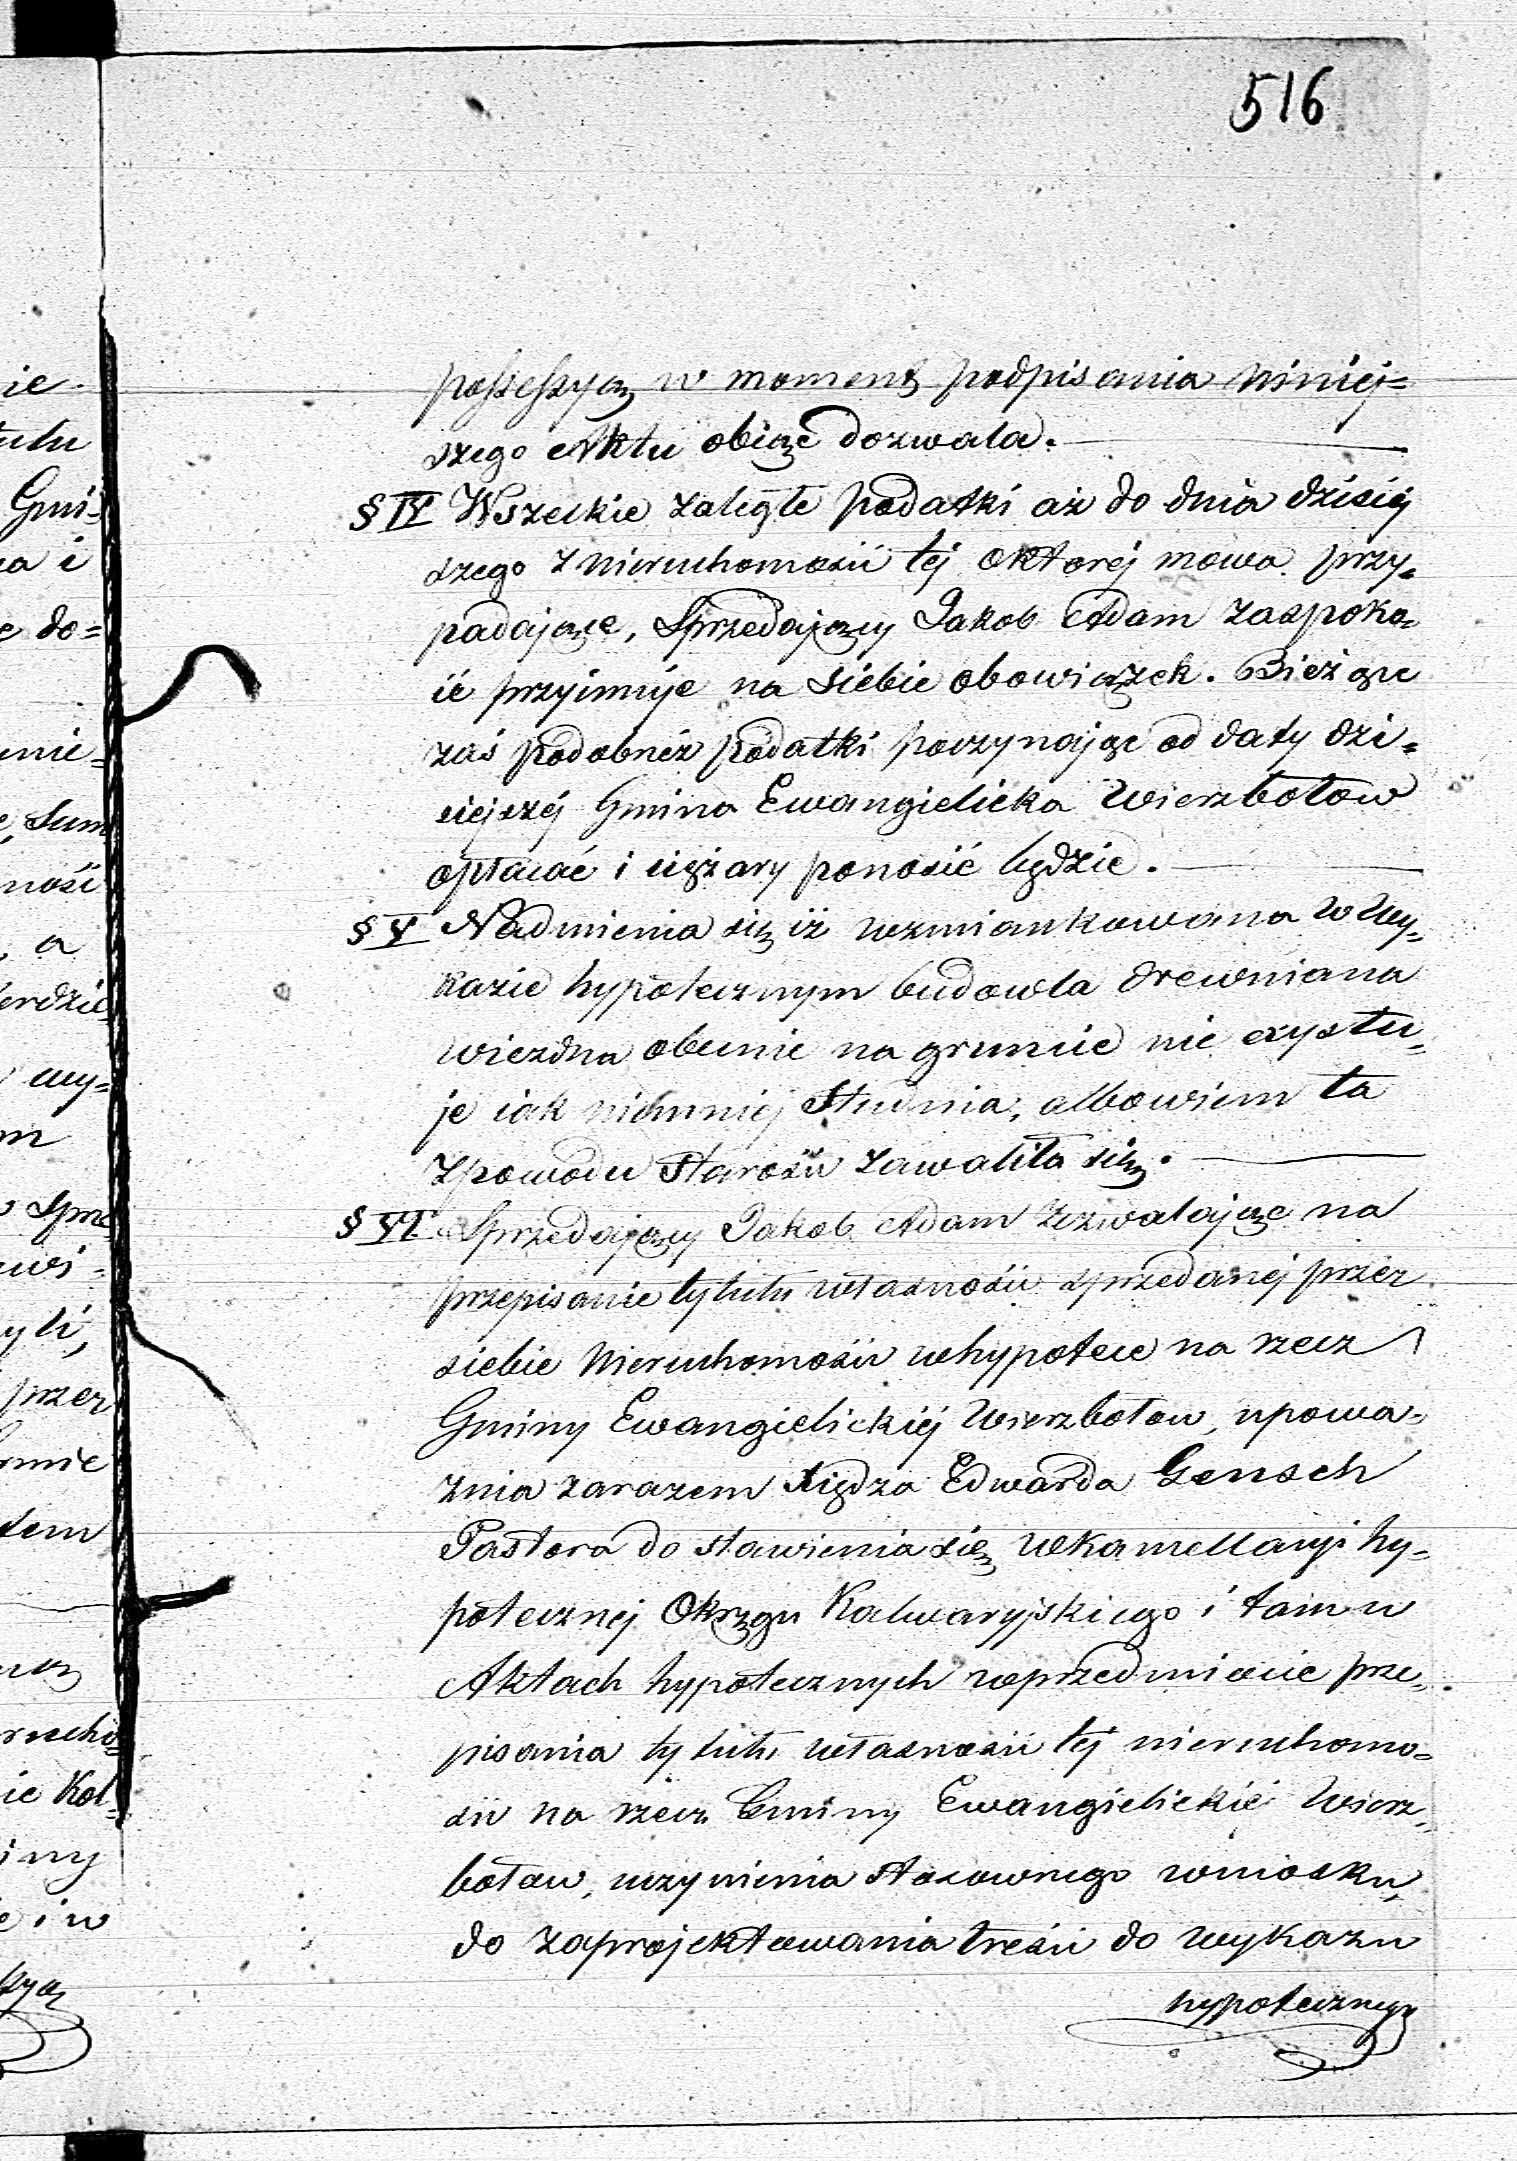 516
possessyą w moment podpisania niniej=
szego Aktu obiąć dozwala.
§ IV Wszelkie zaległe podatki aż do dnia dzisiej
szego z nieruchomości tej o której mowa przy=
padające, Sprzedający Jakob Adam zaspoko=
ić przyimuje na siebie obowiązek. Bieżące
zaś podobnéż podatki poczynając od daty dzi=
siejszéj Gmina Ewangielicka Wierzbołow
opłacać i ciężary ponosić będzie.
§ V Nadmienia się iż wzmiankowana w wy=
kazie hypotecznym budowla drewniana
wiezdna obecnie na gruncie nie exystu=
je iak niemniej Studnia, albowiem ta
z powodu Starości zawaliła się.
§ VI. Sprzedający Jakob Adam zezwalając na
przepisanie tytułu własności sprzedanéj przez
siebie Nieruchomości w hypotece na rzecz
Gminy Ewangielickiéj Wierzbołow, upowa=
żnia zarazem Xiędza Edwarda Gensch
Pastora do stawienia się w Kancellaryi hy=
potecznéj Okręgu Kalwaryjskiego i tam w
Aktach hypotecznych w przedmiocie prze=
pisania tytułu własności téj nieruchomo=
ści na rzecz Gminy Ewangielickiéj Wierz=
bołow, uczynienia stosownego wniosku,
do zaprojektowania treści do wykazu
hypotecznego
ie
tułu
Gmi=
a i
e do=
nie=
, Sum
ność
, a
erdzie
wy=
m
Sprze
wi=
yli,
przez
mie
tem
rucho=
ie Kal=
iny
i w